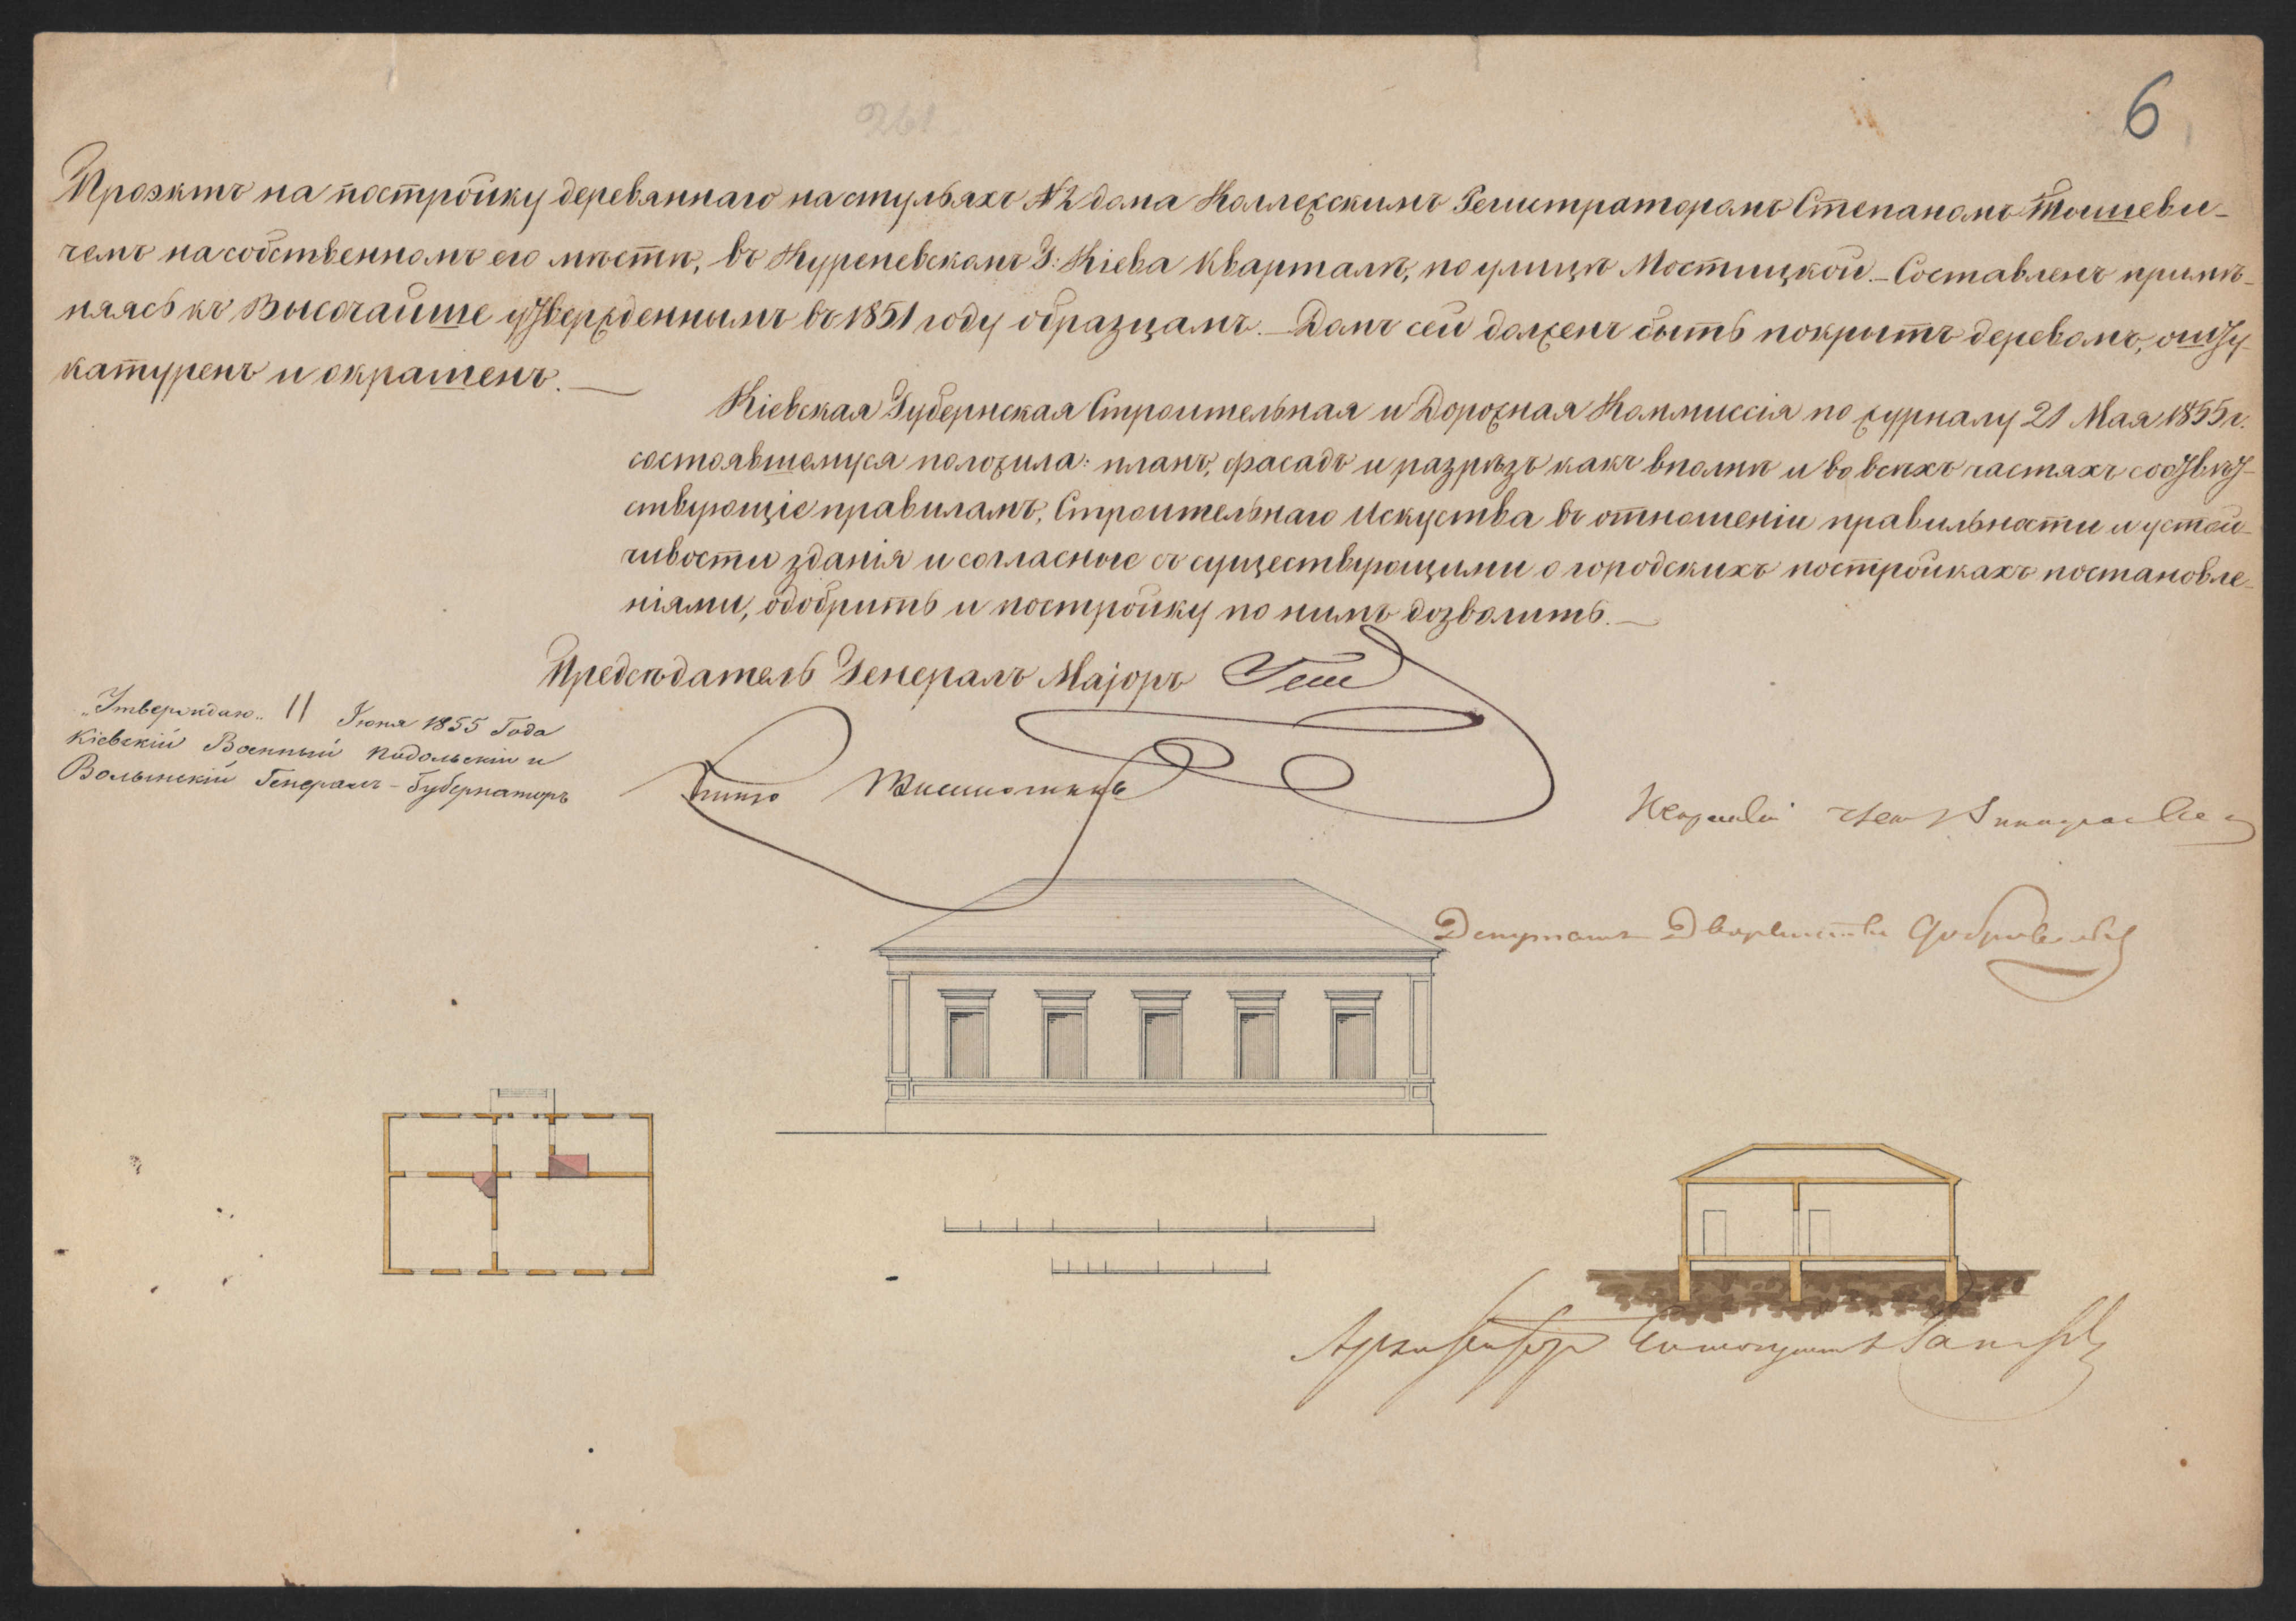 6
261
Проэктъ на постройку деревяннаго на стульяхъ №2 дома Коллежскимъ Регистраторомъ Степаномъ Тошеви-
чемъ на собственномъ его мѣстѣ, въ Куреневскомъ Г: Кіева кварталѣ, по улицѣ Мостицкой. – Составленъ примѣ-
няясь къ Высочайше утвержденнымъ въ 1851 году образцамъ. – Домъ сей долженъ быть покрытъ деревомъ, ошту-
катуренъ и окрашенъ. —
Кіевская Губернская Строительная и Дорожная Коммиссія по журналу 21 Мая 1855 г.
состоявшемуся положила: планъ, фасадъ и разрѣзъ какъ вполнѣ и во всѣхъ частяхъ соотвѣт-
ствующіе правиламъ, Строительнаго Искуства въ отношеніи правильности и устой-
чивости зданія и согласные съ существующими о городскихъ постройкахъ постановле-
ніями, одобрить и постройку по нимъ дозволить. —
Предсѣдатель Генералъ Маіоръ Гессе
„Утверждаю„ 11 Іюня 1855 Года
Кіевскій Военный Подольскій и
Волынскій Генералъ-Губернаторъ
Депутатъ Дворянства
Архитекторъ